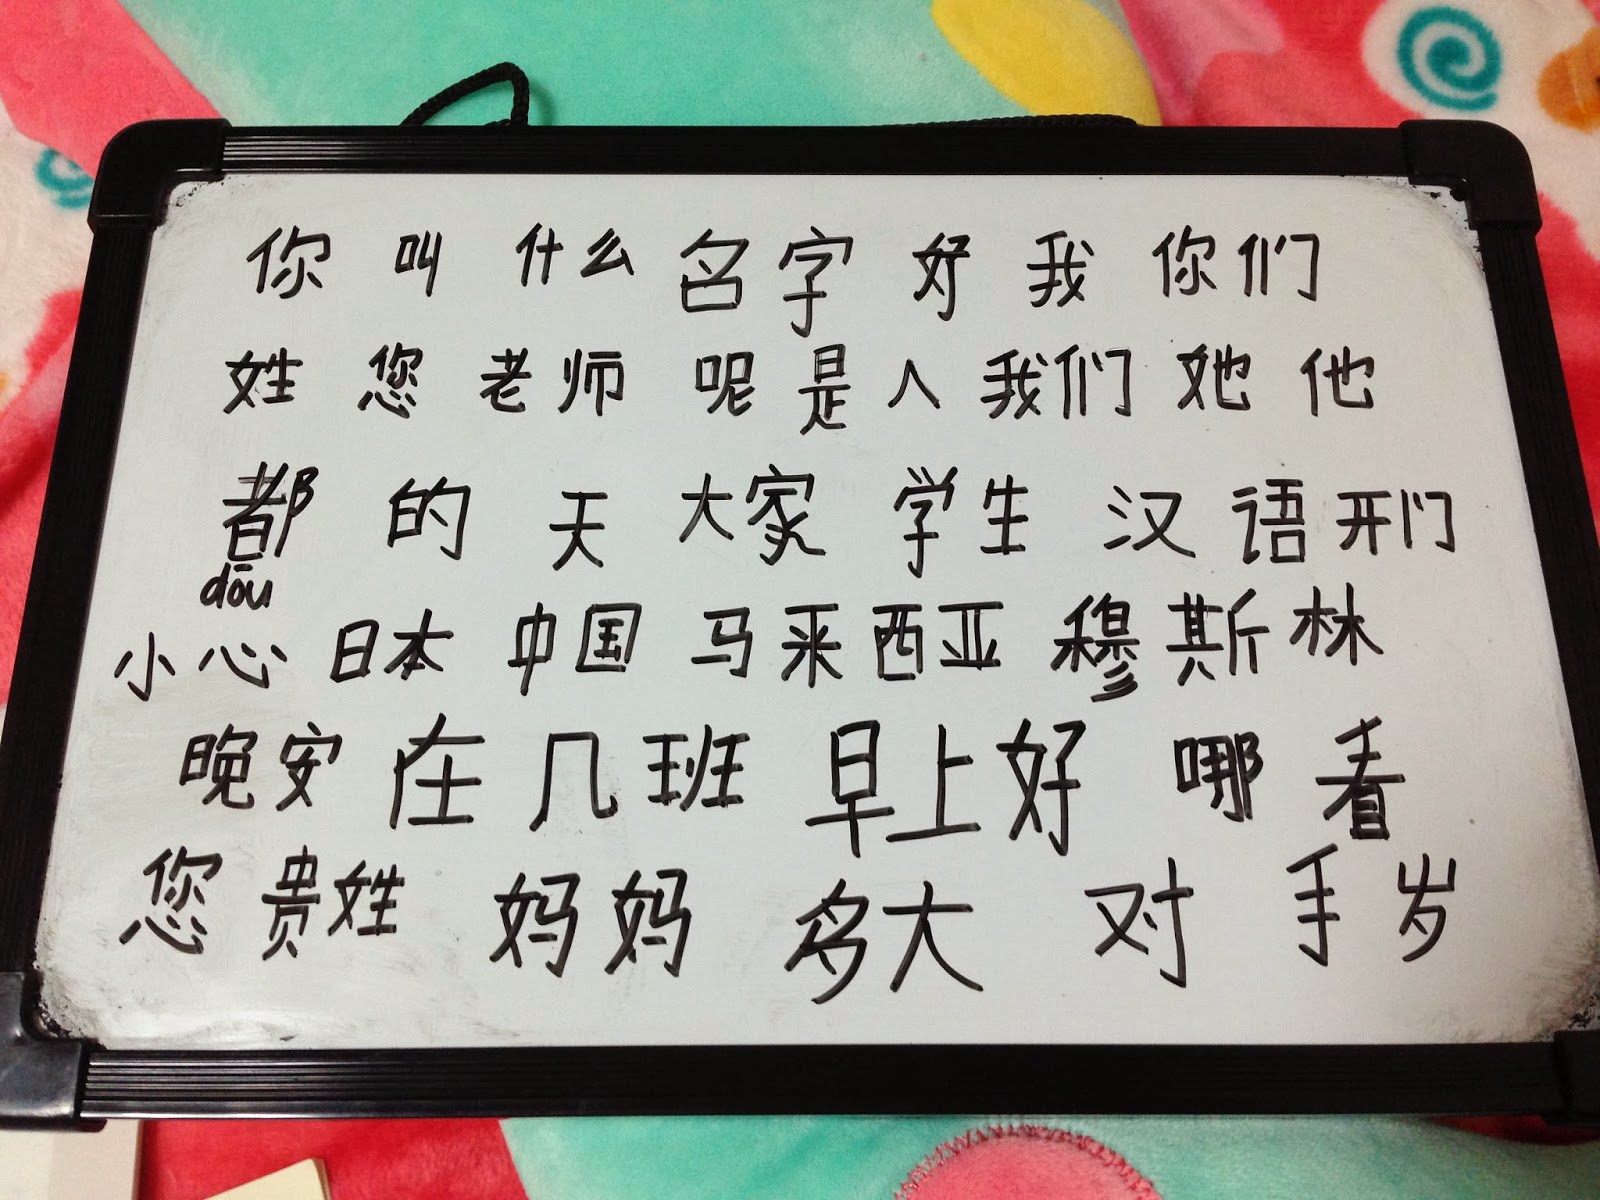 你 叫 什么 名字 好 我 你们
姓 您 老师 呢 是 人 我们 她 他
都 的 天 大家 学生 汉语 开门
dōu
小心 日本 中国 马来西亚 穆斯林
晚安 在 几班 早上好 哪 看
您 贵姓 妈妈 多大 对 手 岁